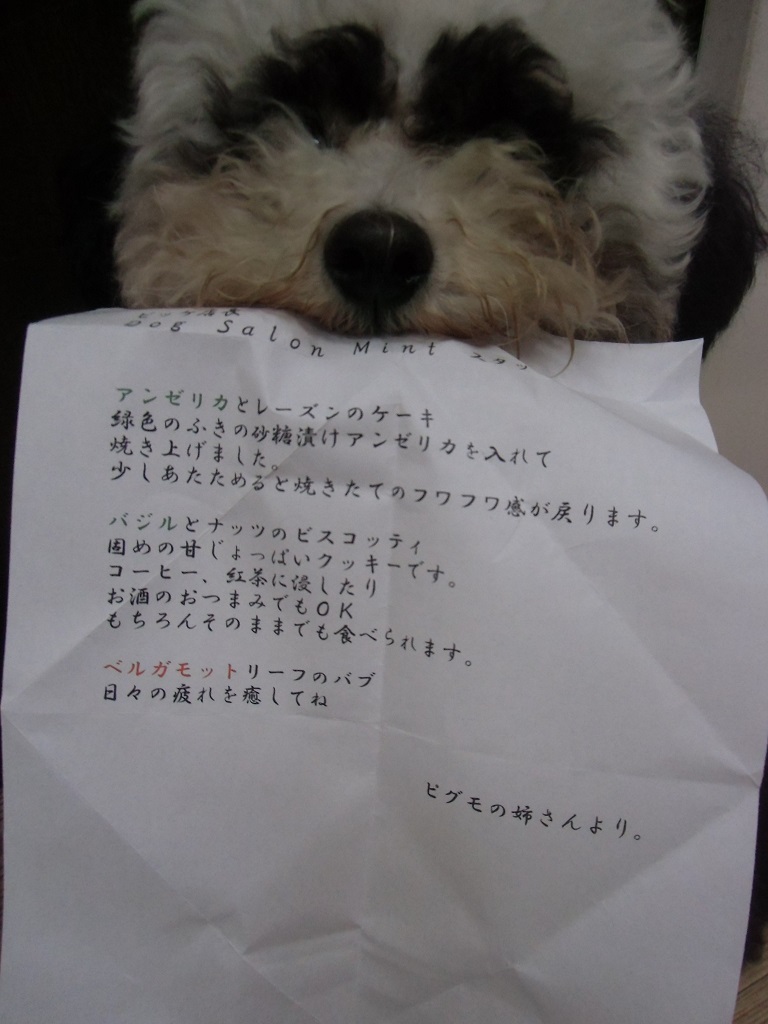 ビッグ店長
Dog Salon Mint スタッ
アンゼリカとレーズンのケーキ
緑色のふきの砂糖漬けアンゼリカを入れて
焼き上げました。
少しあたためると焼きたてのフワフワ感が戻ります。
バジルとナッツのビスコッティ
固めの甘じょっぱいクッキーです。
コーヒー、紅茶に浸したり
お酒のおつまみでもOK
もちろんそのままでも食べられます。
ベルガモットリーフのバブ
日々の疲れを癒してね
ピグモの姉さんより。